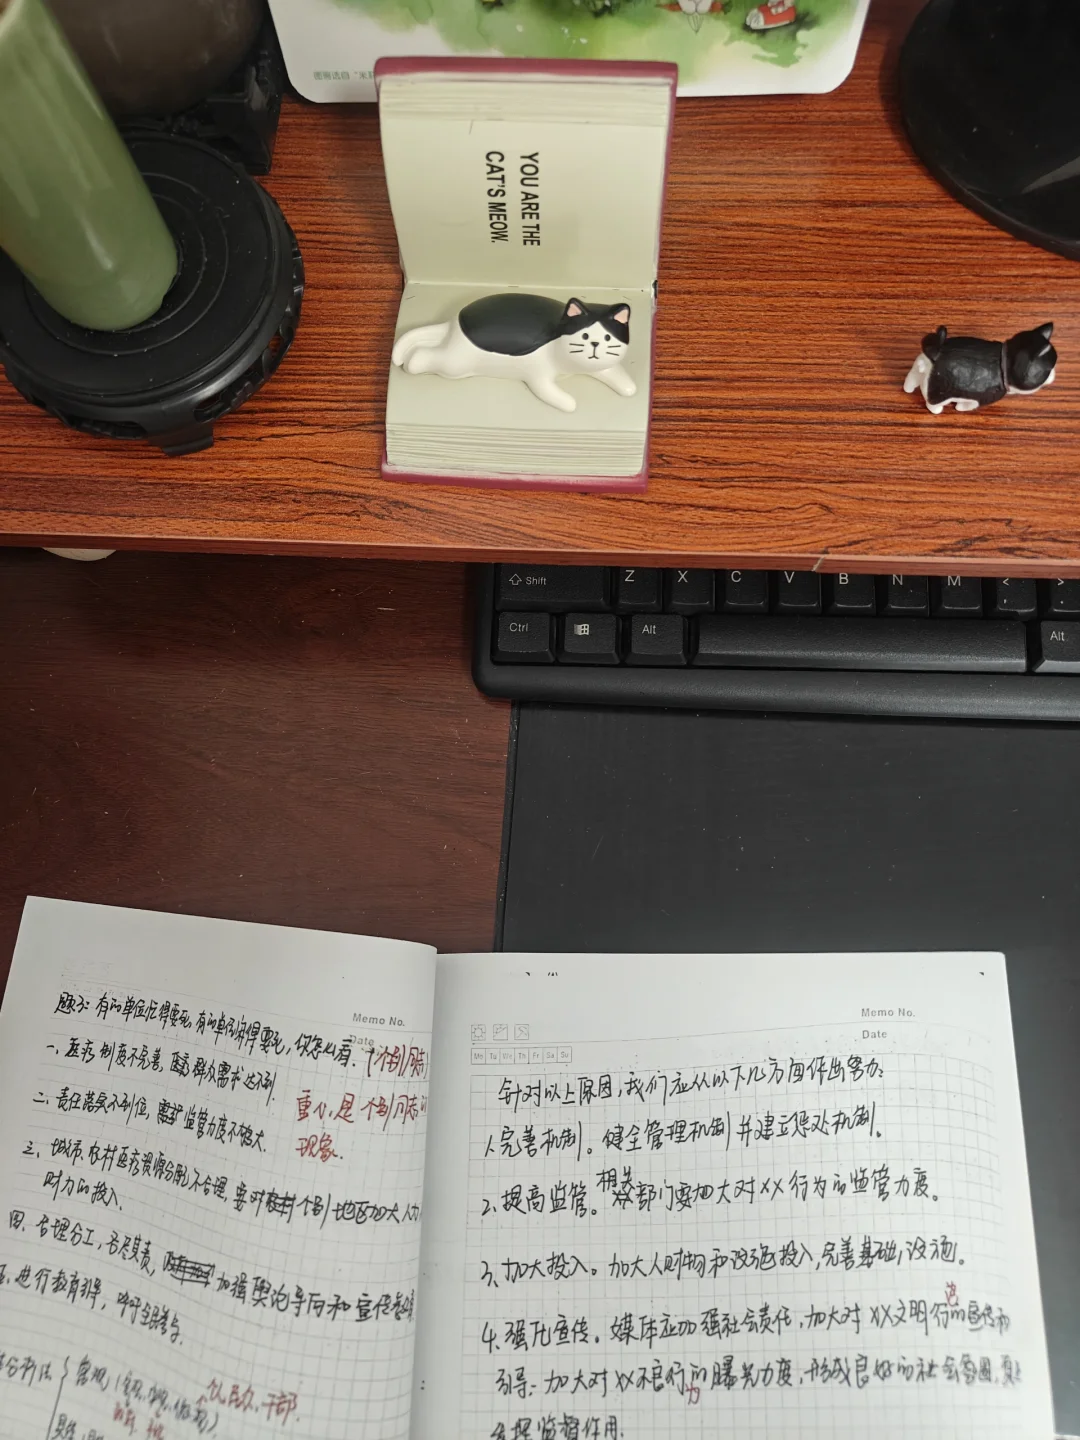 YOU ARE THE
CAT'S MEOW.
Shift Z X C V B N M < >
Ctrl Alt Alt
Memo No.
Date
题3: 有的单位忙得要死,有的单位闲得要死,你怎么看.(个别/同志
一、医疗制度不完善,医疗群众需求达不到.
重心是个别同志的
现象.
二、责任落实不到位,监管力度不够大.
三、城市、农村医疗资源分配不合理,要对个别地区加大人力
财力的投入.
四、合理分工,各尽其责,加强舆论导向和宣传
五、进行教育引导,呼于全民参与.
分析法
客观
干部.
Memo No.
Date
Mo Tu We Th Fr Sa Su
针对以上原因,我们应从以下几方面作出努力:
1.完善机制。健全管理机制并建立惩处机制.
2.提高监管。相关部门要加大对XX行为的监管力度。
3.加大投入。加大人财物和设施投入,完善基础设施.
4.强化宣传。媒体应加强社会责任,加大对XX文明行为的宣传和
引导;加大对XX不良行为的曝光力度,形成良好的社会氛围,
发挥监督作用.